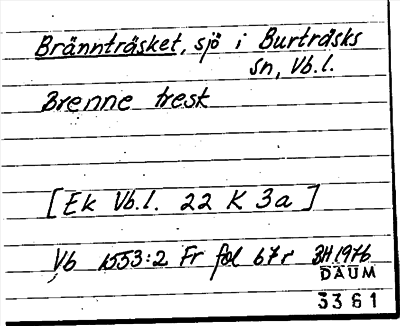 Brännträsket, sjö i Burträsks
sn, Vb.l.
Brenne tresk
[Ek Vb.l. 22 K 3a]
Vb 1553:2 Fr fol 67r BH 1976
DAUM
3361